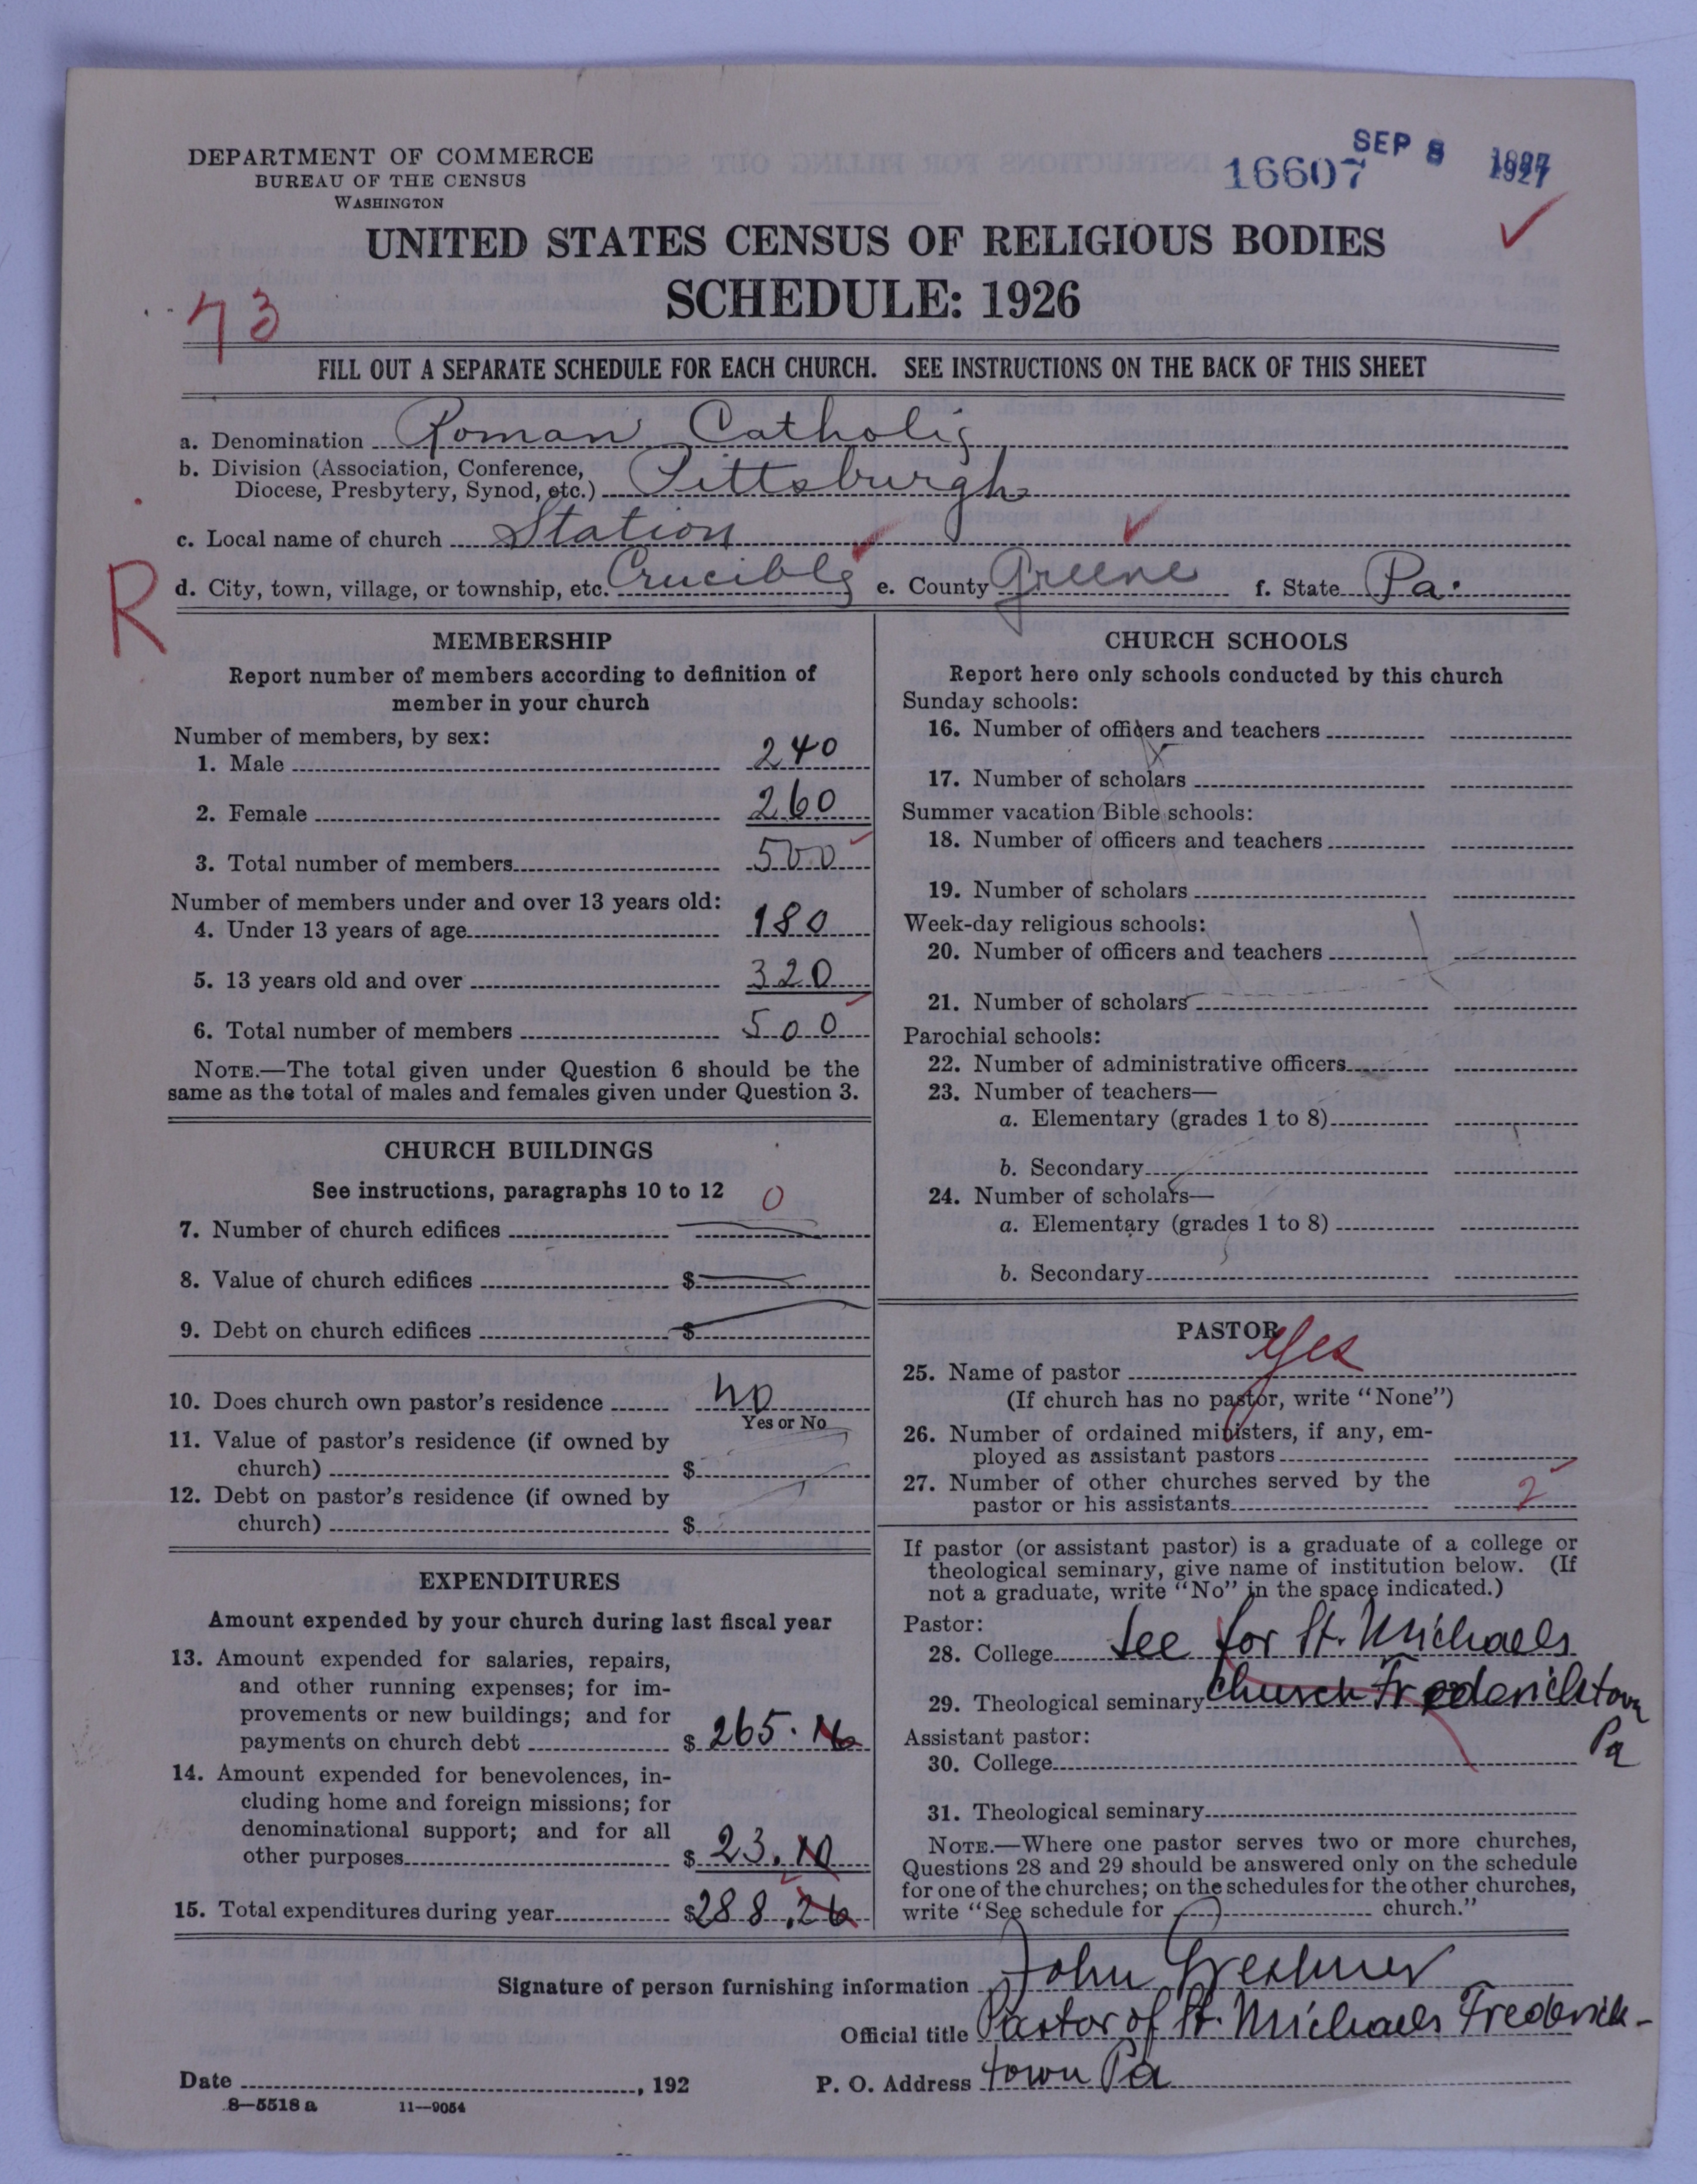 DEPARTMENT OF COMMERCE
BUREAU OF THE CENSUS
WASHINGTON
16607
SEP 8 1927
UNITED STATES CENSUS OF RELIGIOUS BODIES
SCHEDULE: 1926
73
FILL OUT A SEPARATE SCHEDULE FOR EACH CHURCH. SEE INSTRUCTIONS ON THE BACK OF THIS SHEET
a. Denomination Roman Catholic
b. Division (Association, Conference,
Diocese, Presbytery, Synod, etc.) Pittsburgh
c. Local name of church Station
R
d. City, town, village, or township, etc. Crucible e. County Greene f. State Pa.
MEMBERSHIP
Report number of members according to definition of
member in your church
Number of members, by sex:
1. Male 240
2. Female 260
3. Total number of members 500
Number of members under and over 13 years old:
4. Under 13 years of age 180
5. 13 years old and over 320
6. Total number of members 500
NOTE.—The total given under Question 6 should be the
same as the total of males and females given under Question 3.
CHURCH BUILDINGS
See instructions, paragraphs 10 to 12
0
7. Number of church edifices
8. Value of church edifices $
9. Debt on church edifices $
10. Does church own pastor's residence No
Yes or No
11. Value of pastor's residence (if owned by
church) $
12. Debt on pastor's residence (if owned by
church) $
EXPENDITURES
Amount expended by your church during last fiscal year
13. Amount expended for salaries, repairs,
and other running expenses; for im-
provements or new buildings; and for
payments on church debt $ 265.16
14. Amount expended for benevolences, in-
cluding home and foreign missions; for
denominational support; and for all
other purposes $ 23.10
15. Total expenditures during year $288.26
CHURCH SCHOOLS
Report here only schools conducted by this church
Sunday schools:
16. Number of officers and teachers
17. Number of scholars
Summer vacation Bible schools:
18. Number of officers and teachers
19. Number of scholars
Week-day religious schools:
20. Number of officers and teachers
21. Number of scholars
Parochial schools:
22. Number of administrative officers
23. Number of teachers—
a. Elementary (grades 1 to 8)
b. Secondary
24. Number of scholars—
a. Elementary (grades 1 to 8)
b. Secondary
PASTOR
25. Name of pastor Yes
(If church has no pastor, write "None")
26. Number of ordained ministers, if any, em-
ployed as assistant pastors
27. Number of other churches served by the
pastor or his assistants 2
If pastor (or assistant pastor) is a graduate of a college or
theological seminary, give name of institution below. (If
not a graduate, write "No" in the space indicated.)
Pastor:
28. College See for St. Michaels
29. Theological seminary Church Fredericktown
Pa
Assistant pastor:
30. College
31. Theological seminary
NOTE.—Where one pastor serves two or more churches,
Questions 28 and 29 should be answered only on the schedule
for one of the churches; on the schedules for the other churches,
write "See schedule for church."
Signature of person furnishing information John
Official title Pastor of St. Michaels Frederick-
Date , 192 P. O. Address town Pa
8—5518 a 11—9054